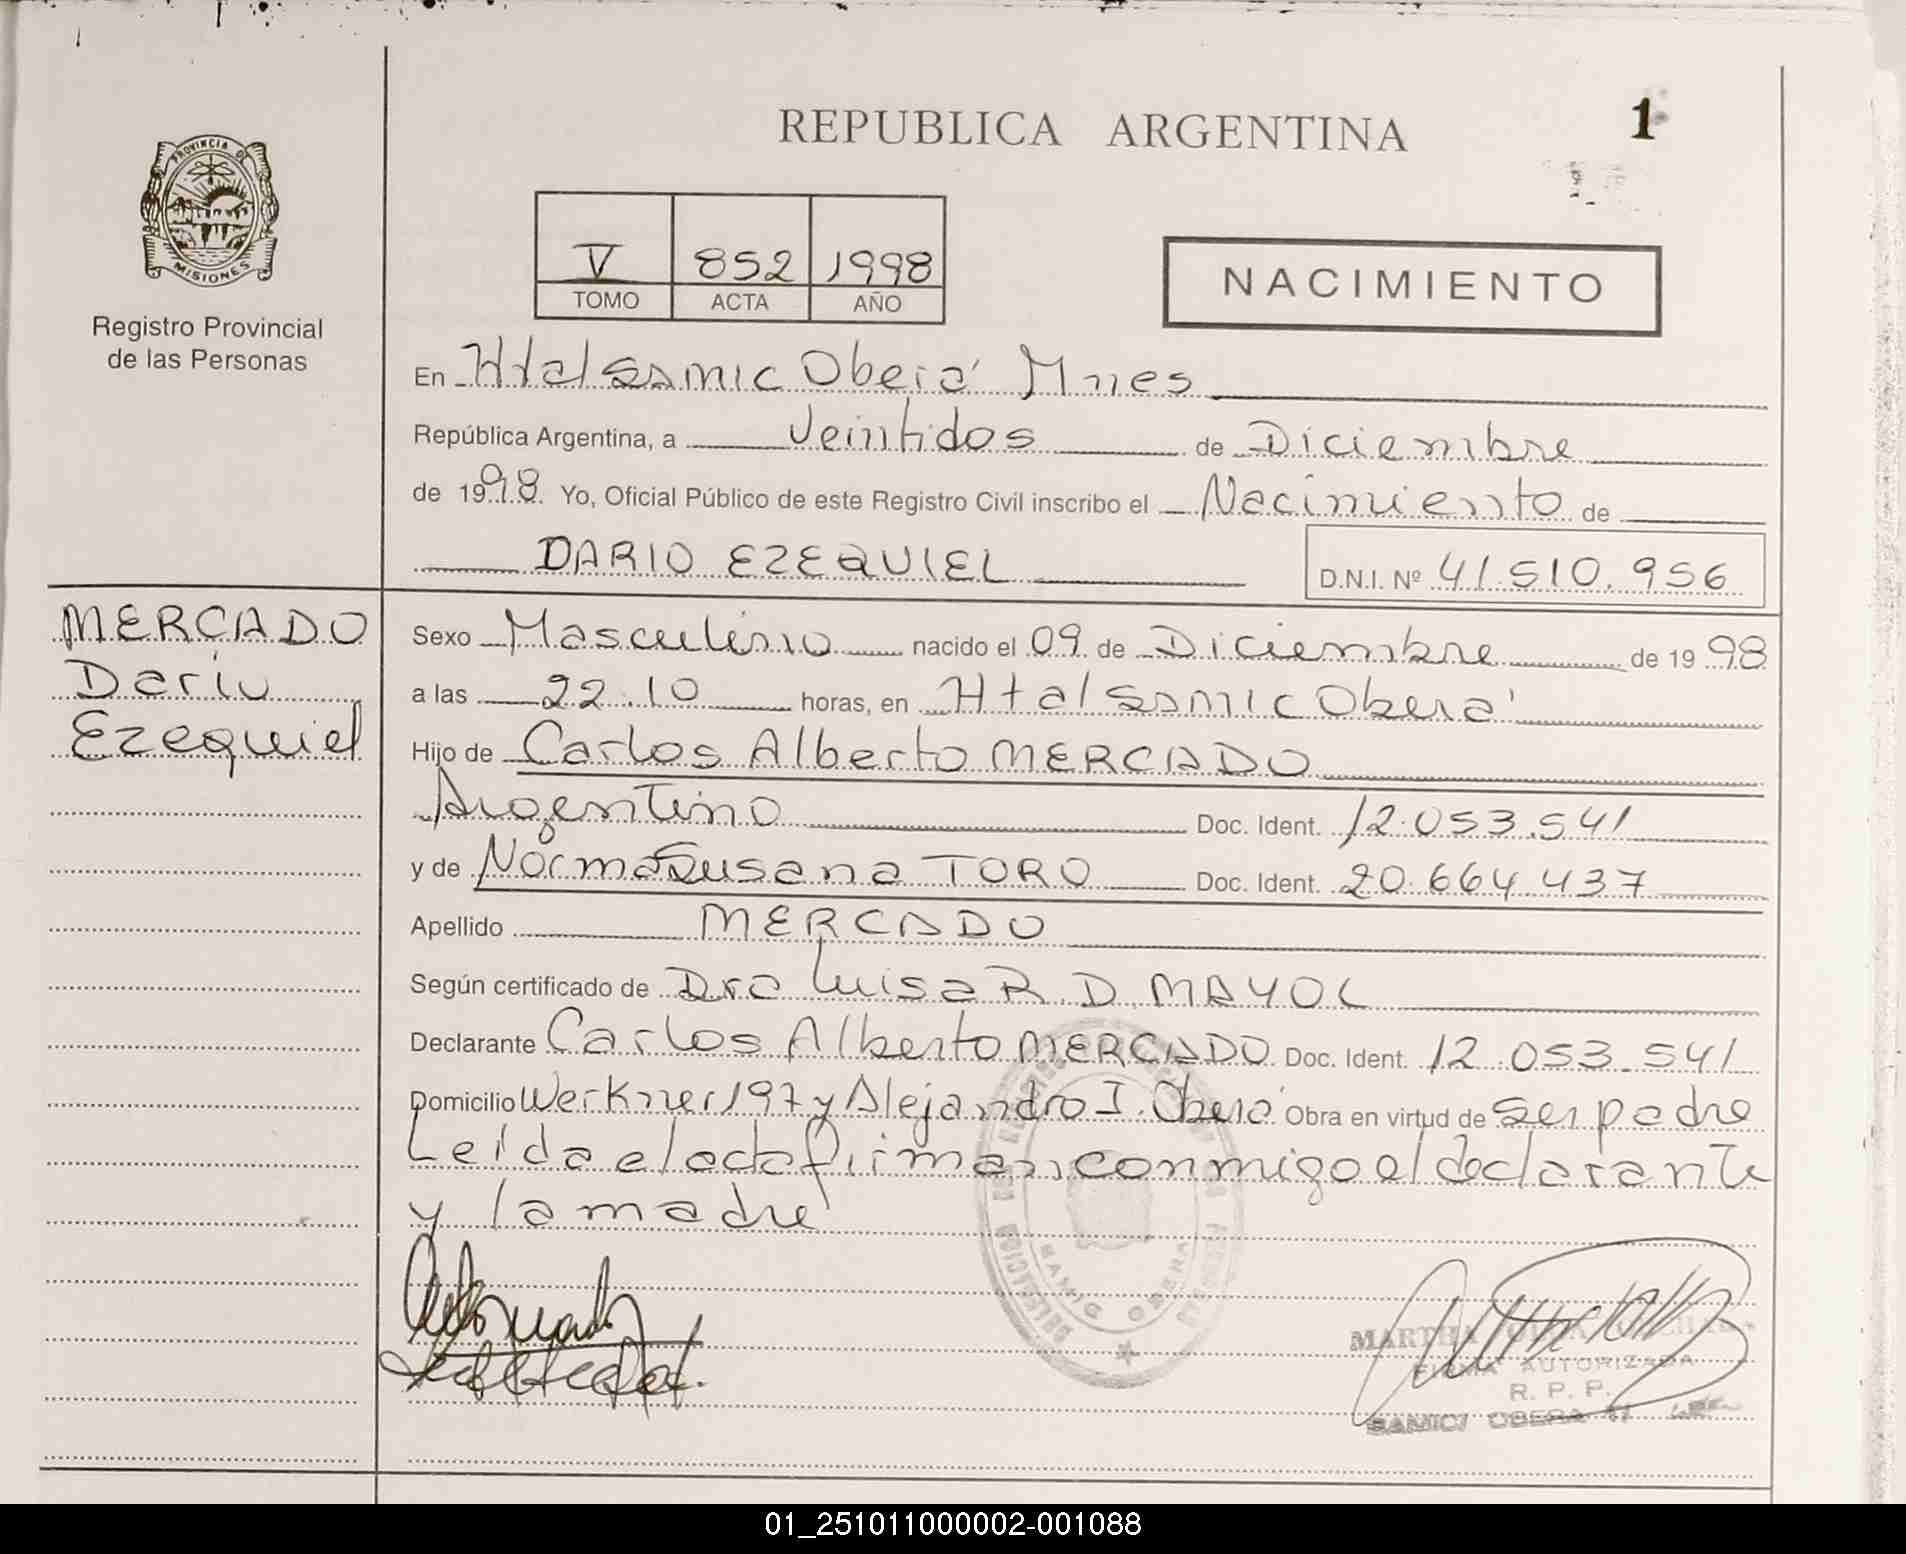 REPUBLICA ARGENTINA
1
PROVINCIA DE
MISIONES
Registro Provincial
de las Personas
V 852 1998
TOMO ACTA AÑO
NACIMIENTO
En Htal Samic Oberá Mnes
República Argentina, a Veintidos de Diciembre
de 1998. Yo, Oficial Público de este Registro Civil inscribo el Nacimiento de
DARIO EZEQUIEL D.N.I. Nº 41.510.956
MERCADO
Dario
Ezequiel
Sexo Masculino nacido el 09 de Diciembre de 1998
a las 22.10 horas, en Htal Samic Oberá
Hijo de Carlos Alberto MERCADO
Argentino Doc. Ident. 12.053.541
y de Norma Susana TORO Doc. Ident. 20.664.437
Apellido MERCADO
Según certificado de Dra Luisa R. D. MAYOL
Declarante Carlos Alberto MERCADO Doc. Ident. 12.053.541
Domicilio Werkner 197 y Alejandro I. Oberá Obra en virtud de Ser padre
Leída el acta firman conmigo el declarante
y la madre
SAMIC OBERA
MARTHA
FIRMA AUTORIZADA
R. P. P.
SAMIC OBERA
01_251011000002-001088